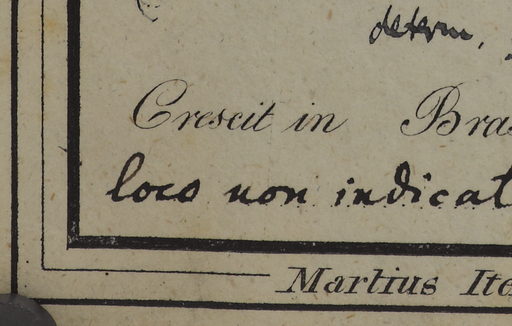 determ.
Crescit in Bras
loco non indicat
Martius Ite